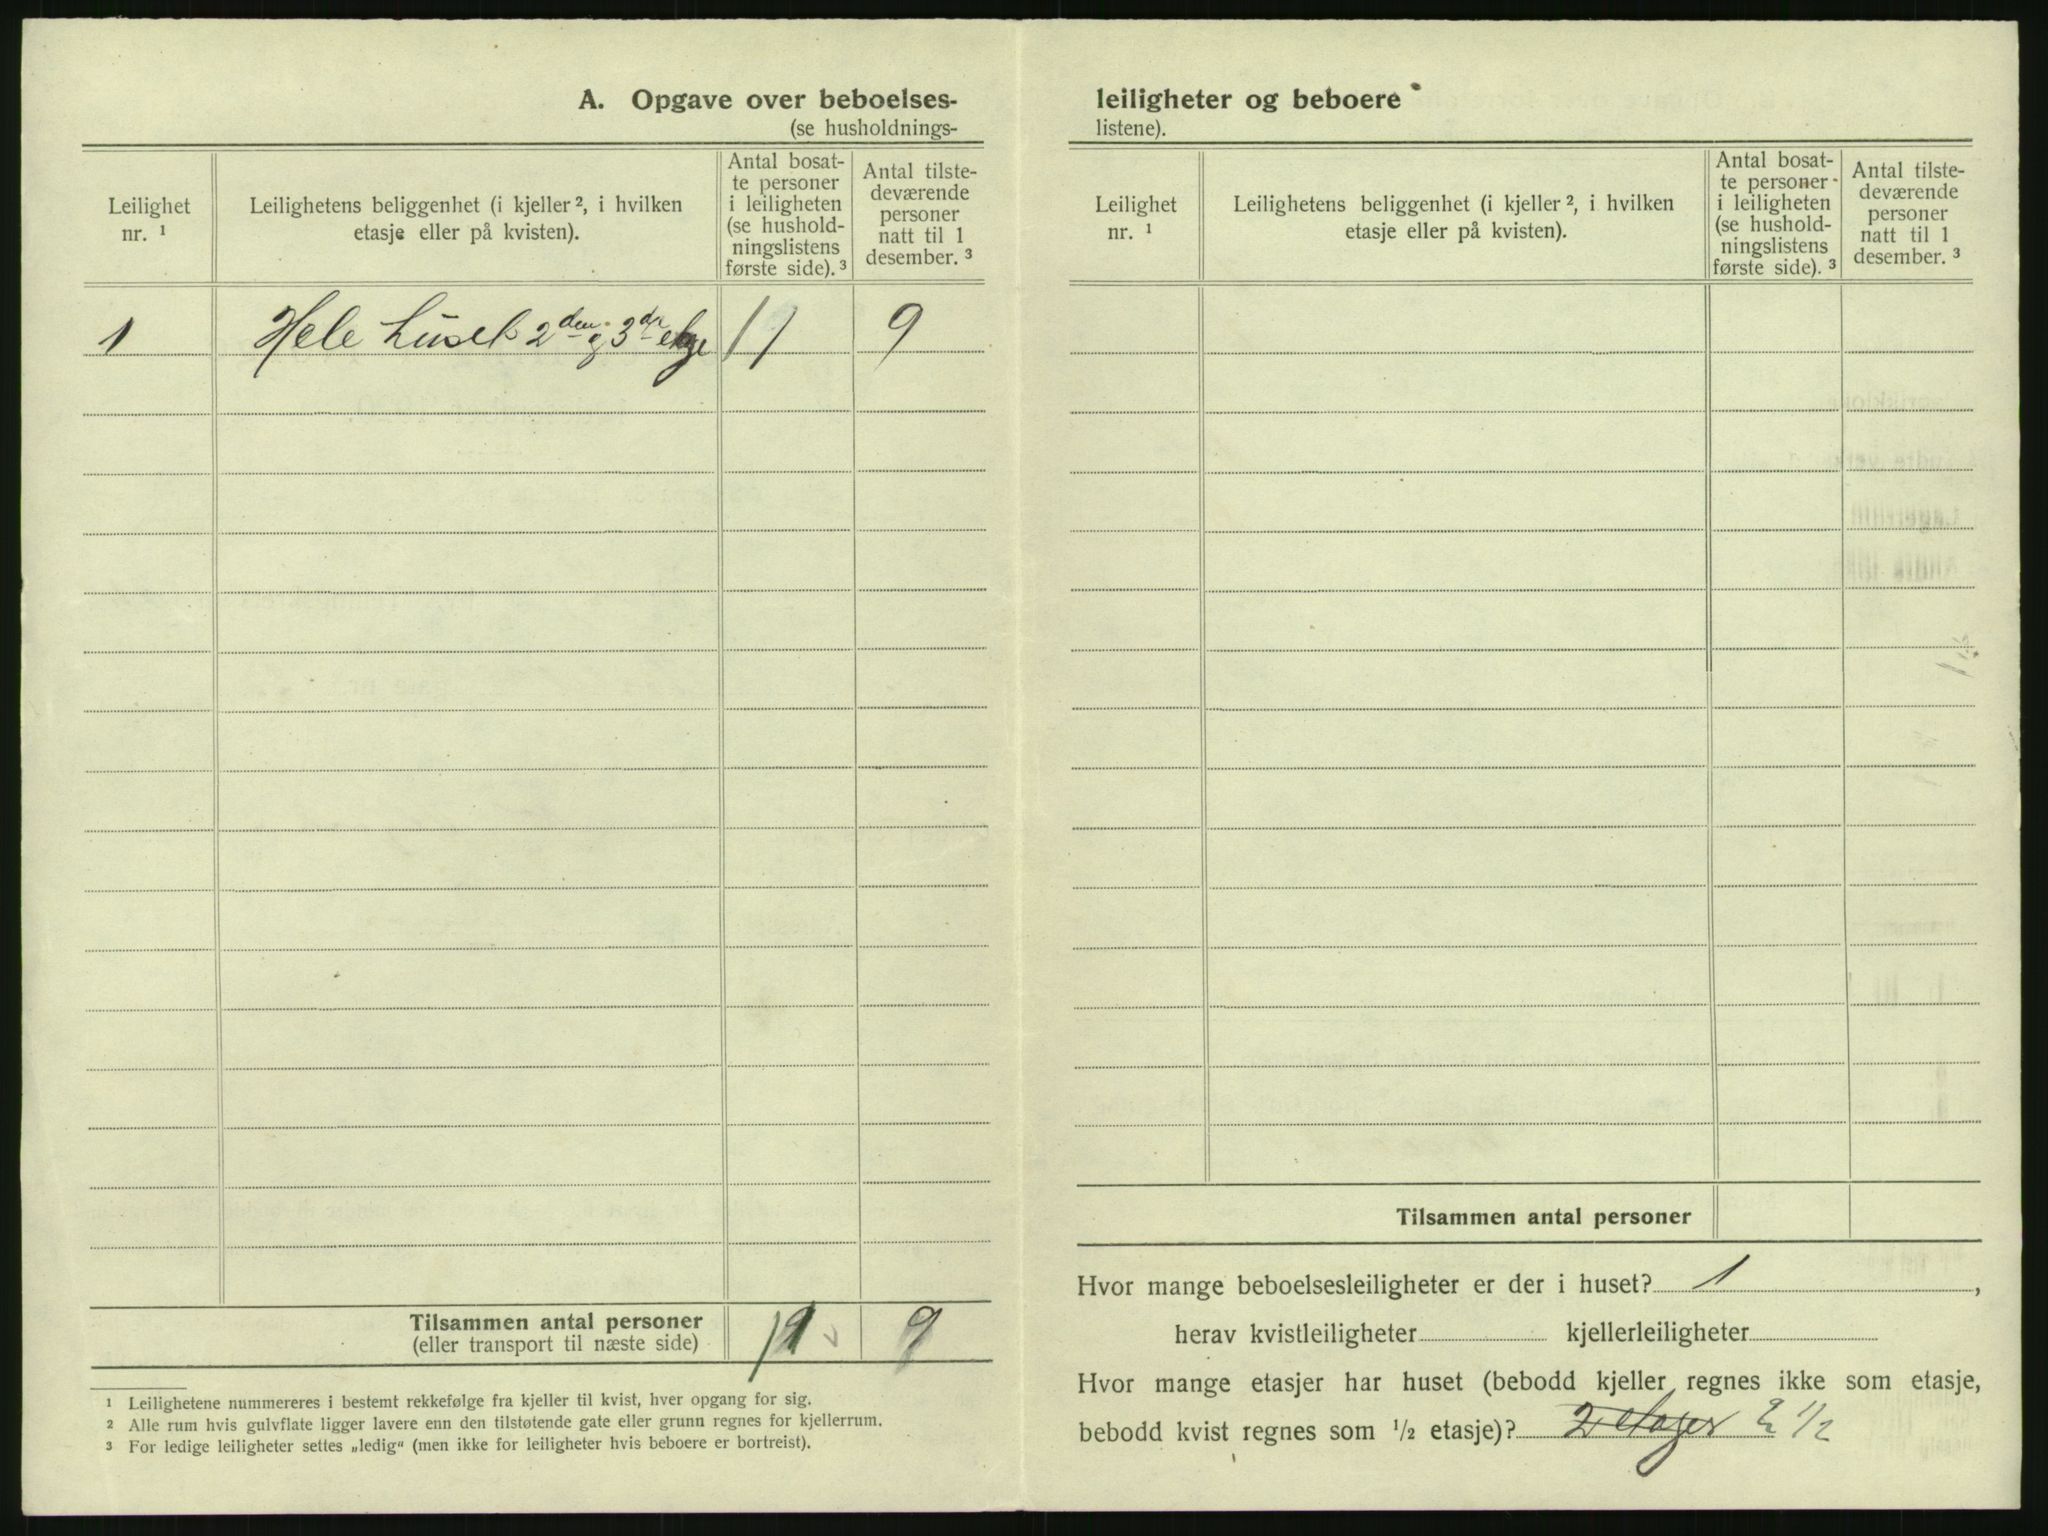 A. Opgave over beboelses-
(se husholdnings-
Leilighet
nr. ¹
Leilighetens beliggenhet (i kjeller ², i hvilken
etasje eller på kvisten).
Antal bosat-
te personer
i leiligheten
(se hushold-
ningslistens
første side). ³
Antal tilste-
deværende
personer
natt til 1
desember. ³
1 Hele huset 2den og 3de 11 9
Tilsammen antal personer
(eller transport til næste side)
11 9
¹ Leilighetene nummereres i bestemt rekkefølge fra kjeller til kvist, hver opgang for sig.
² Alle rum hvis gulvflate ligger lavere enn den tilstøtende gate eller grunn regnes for kjellerrum.
³ For ledige leiligheter settes „ledig“ (men ikke for leiligheter hvis beboere er bortreist).
leiligheter og beboere
listene).
Leilighet
nr. ¹
Leilighetens beliggenhet (i kjeller ², i hvilken
etasje eller på kvisten).
Antal bosat-
te personer
i leiligheten
(se hushold-
ningslistens
første side). ³
Antal tilste-
deværende
personer
natt til 1
desember. ³
Tilsammen antal personer
Hvor mange beboelsesleiligheter er der i huset? 1 ,
herav kvistleiligheter kjellerleiligheter
Hvor mange etasjer har huset (bebodd kjeller regnes ikke som etasje,
bebodd kvist regnes som ½ etasje)? 2 etager 2 1/2